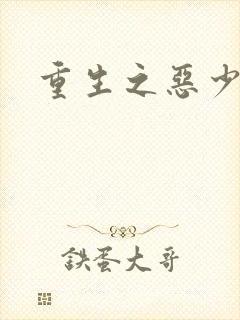 重生之惡少
鉄蛋大哥